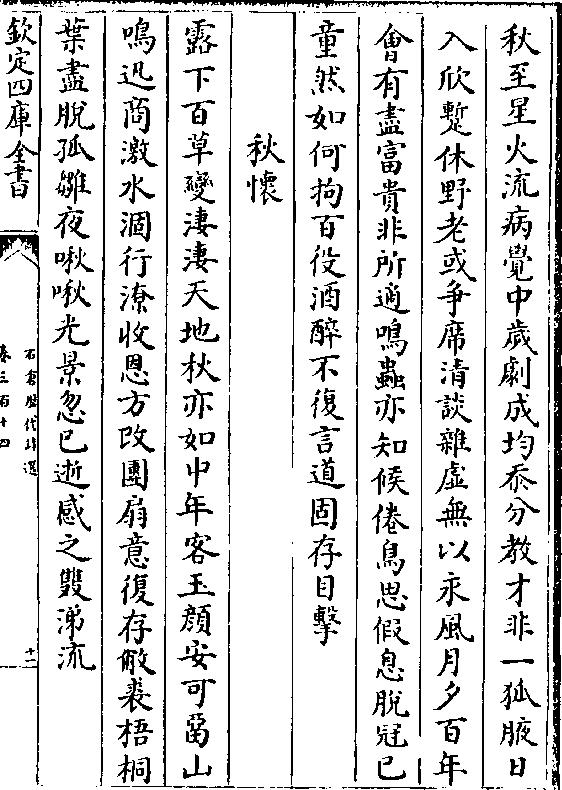 秋至星火流病覺中歲劇成均忝分教才非一狐腋日
入欣蹔休野老或爭席清談雜虛無以永風月夕百年
會有盡富貴非所適鳴蟲亦知候倦鳥思假息脫冠已
童然如何拘百役酒醉不復言道固存目擊
秋懷
露下百草變淒淒天地秋亦如中年客玉顏安可畱山
鳴迅商激水涸行潦收恩方改團扇意復存敝裘梧桐
葉盡脫孤雛夜啾啾光景忽已逝感之雙涕流
欽定四庫全書
石倉歷代詩選
卷三百十四
十二